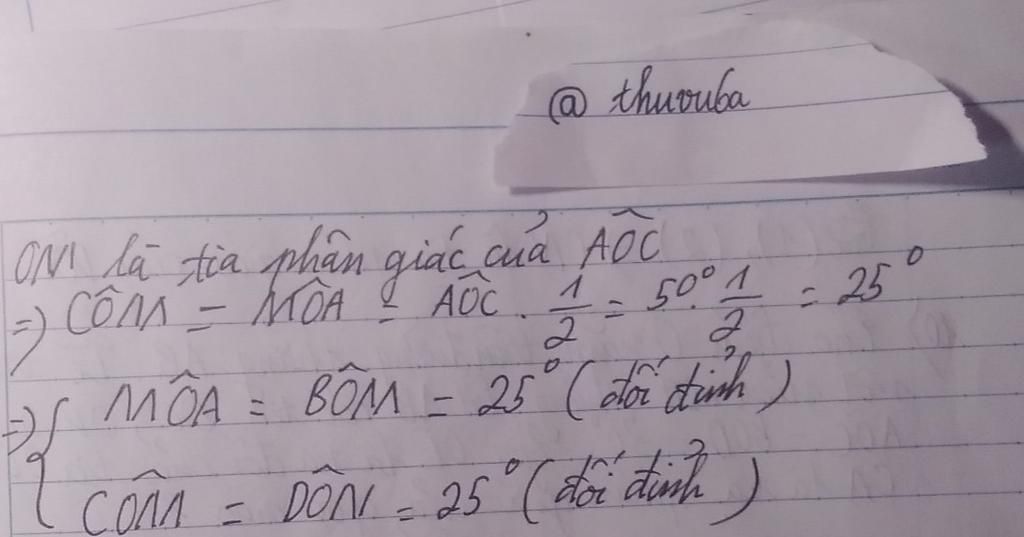 @ thuvuba
OM là tia phân giác của AÔC
=> CÔM = MÔA = AÔC . 1/2 = 50° . 1/2 = 25°
=> { MÔA = BÔM = 25° (đối đỉnh)
CÔM = DÔN = 25° (đối đỉnh)